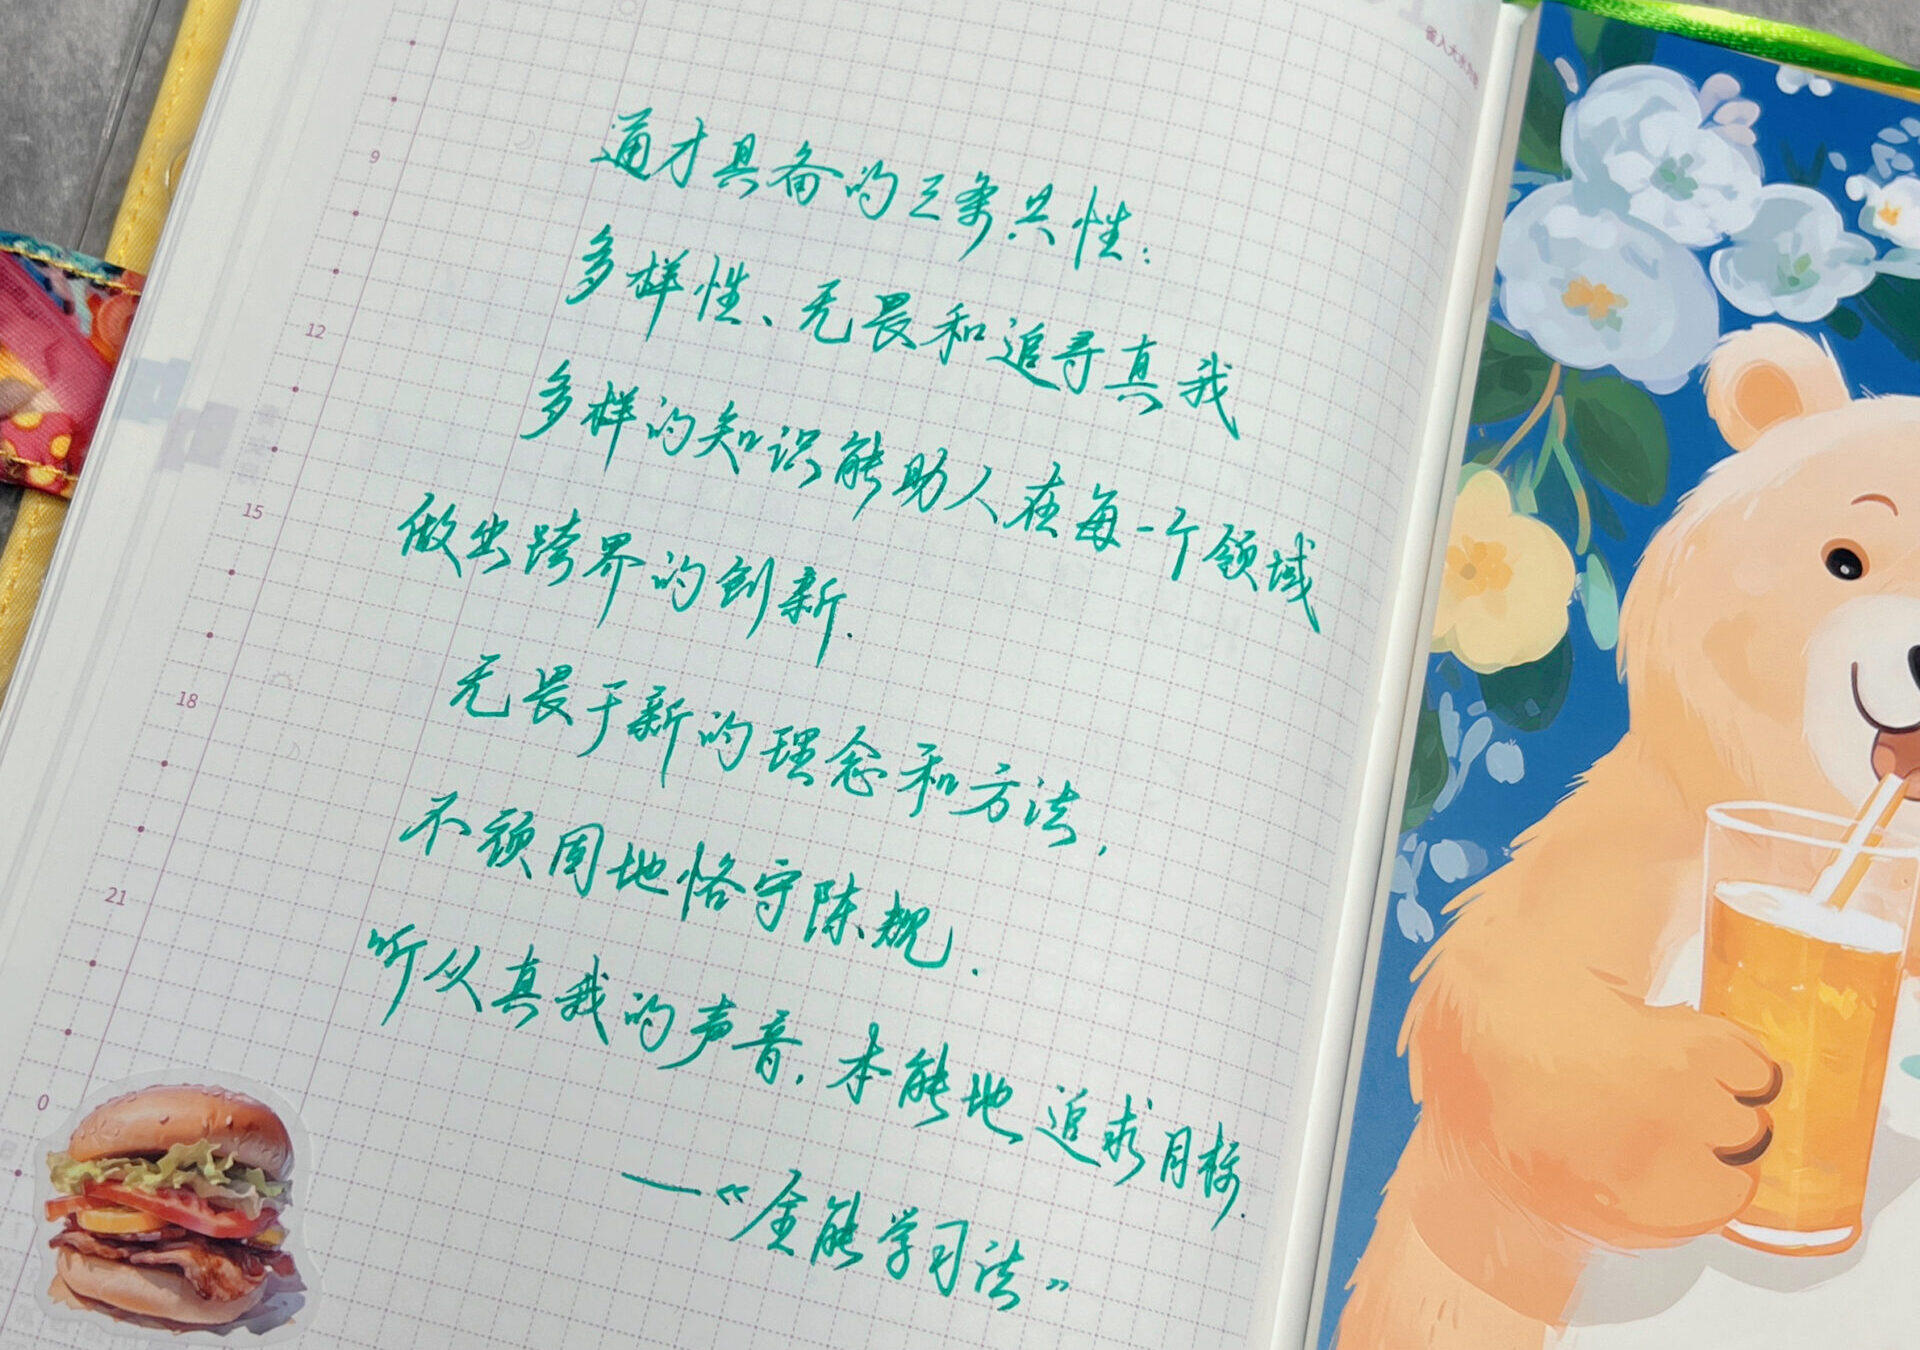 通才具备的三条共性：
多样性、无畏和追寻真我
多样的知识能助人在每一个领域
做出跨界的创新.
无畏于新的理念和方法,
不顽固地恪守陈规.
听从真我的声音,本能地追求目标.
——《全能学习法》
9
12
15
18
21
0